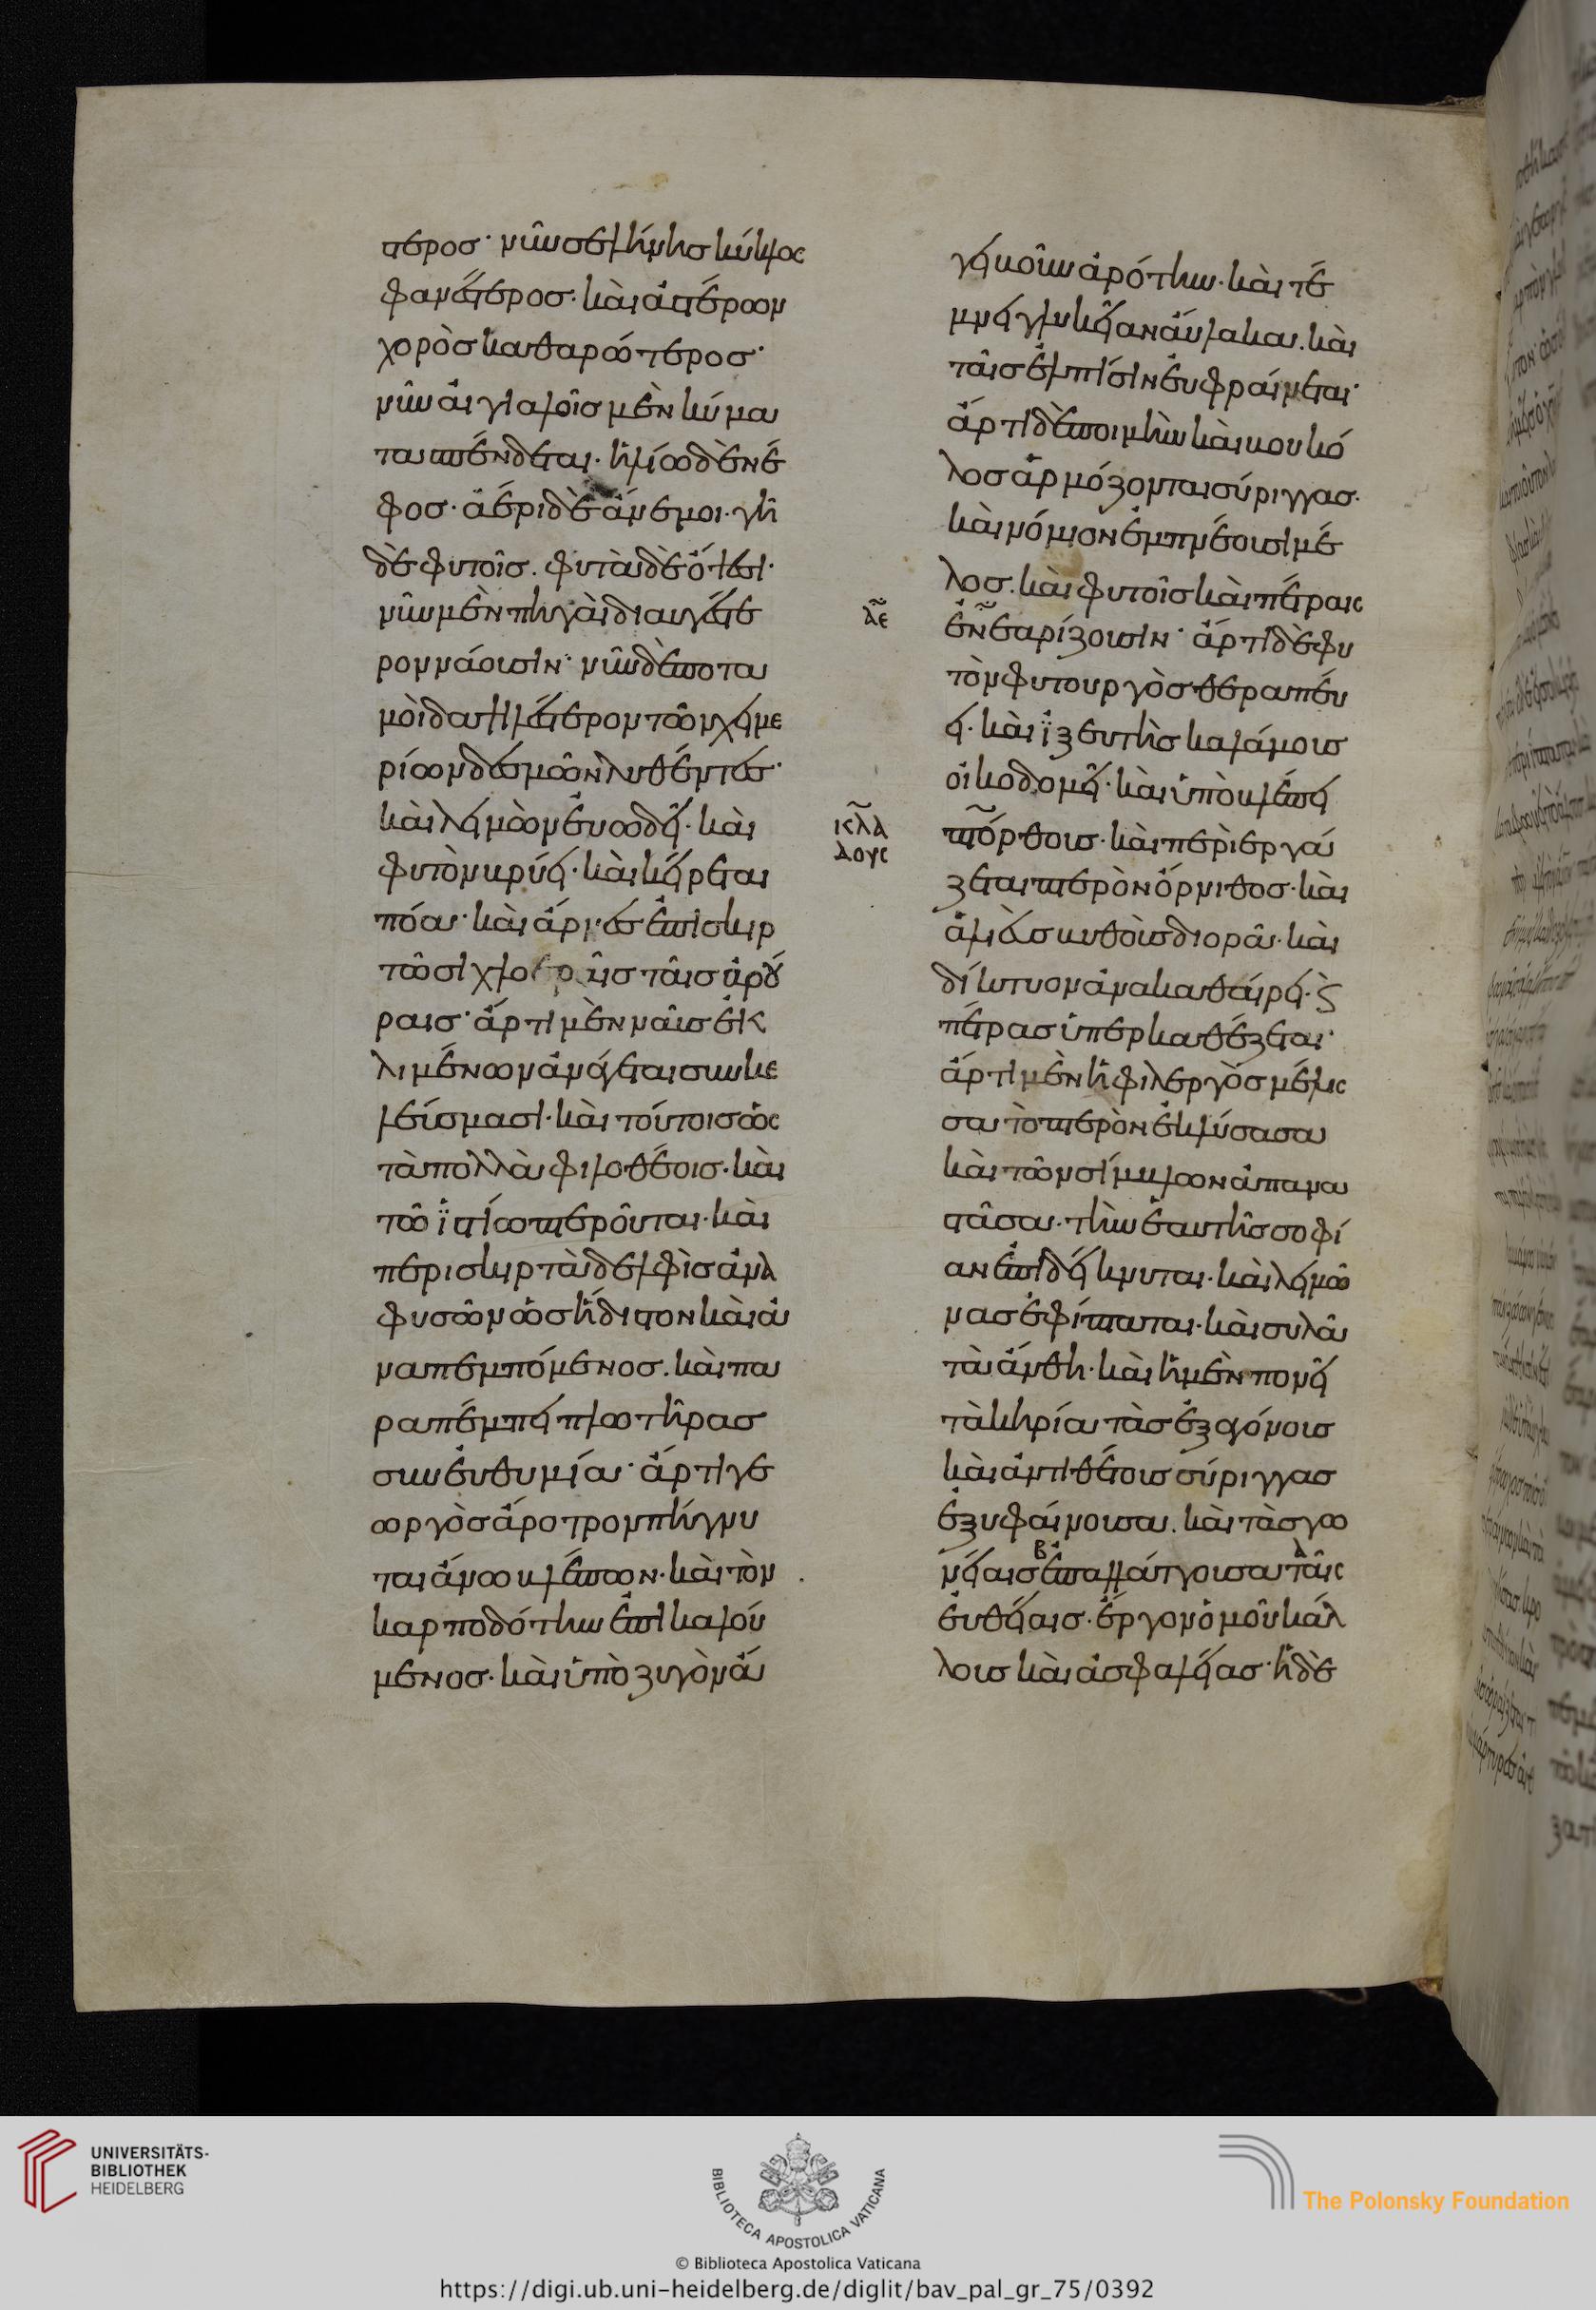 τερος· νῦν σελήνης κύκλος
φανότερος· καὶ ἀστέρων
χορὸς καθαρώτερος·
νῦν αἰγιαλοῖς μὲν κύμα
τα σπένδεται· ἡλίω δὲ νέ
φος· ἀέρι δὲ ἄνεμοι· γῆ
δὲ φυτοῖς. φυτὰ δὲ ὄψεσι·
νῦν μὲν πηγαὶ διαυγέστε
ρον νάουσιν· νῦν δὲ ποτα
μοὶ δαψιλέστερον τῶν χειμε
ρίων δεσμῶν λυθέντες·
καὶ λειμὼν εὐωδεῖ· καὶ
φυτὸν βρύει· καὶ κείρεται
πόα· καὶ ἄρνες ἐπισκιρ
τῶσι χλοεραῖς ταῖς ἀρού
ραις· ἄρτι μὲν ναῦς ἐκ
λιμένων ἀνάγεται σὺν κε
λεύσμασι· καὶ τούτοις ὡς
τὰ πολλὰ φιλοθέοις· καὶ
τῶ ϊστίω πτεροῦται· καὶ
περισκιρτᾶ δελφὶς ἀνα
φυσῶν ὡς ἥδιστον καὶ ἀ
ναπεμπόμενος. καὶ πα
ραπέμπει πλωτῆρας
σὺν εὐθυμία· ἄρτι γε
ωργὸς ἄροτρον πήγνυ
ται ἄνω βλέπων· καὶ τὸν
καρποδότην ἐπικαλού
μενος· καὶ ὑπὸ ζυγὸν ἄ
γει βοῦν ἀρότην· καὶ τέ
μνει γλυκεῖαν αὔλακα. καὶ
ταῖς ἐλπίσιν εὐφραίνεται·
ἄρτι δὲ ποιμὴν καὶ βουκό
λος ἁρμόζονται σύριγγας·
καὶ νόμιον ἐμπνέουσι μέ
λος. καὶ φυτοῖς καὶ πέτραις
ἐνεαρίζουσιν· ἄρτι δὲ φυ
τὸν φυτουργὸς θεραπεύ
ει· καὶ ϊξευτὴς καλάμους
οἰκοδομεῖ· καὶ ὑποβλέπει
κλά
δους
πτόρθους· καὶ περιεργά
ζεται πτερὸν ὄρνιθος· καὶ
ἁλιεὺς βυθοὺς διορᾶ· καὶ
δίκτυον ἀνακαθαίρει· ϗ
πέτρας ὑπερκαθέζεται·
ἄρτι μὲν ἡ φιλεργὸς μέλισ
σα τὸ πτερὸν ἐκλύσασα
καὶ τῶν σίμβλων ἀπανα
στᾶσα· τὴν ἑαυτῆς σοφί
αν ἐπιδείκνυται· καὶ λειμῶ
νας ἐφίπταται· καὶ συλᾶ
τὰ ἄνθη· καὶ ἡ μὲν πονεῖ
τὰ κηρία τὰς ἑξαγόνους
καὶ ἀντιθέτους σύριγγας
ἐξυφαίνουσα. καὶ τὰς γω
νείαις ἐπαλλάττουσα ταῖς
εὐθείαις· ἔργον ὁμοῦ κάλ
λους καὶ ἀσφαλείας· ἡ δὲ
UNIVERSITÄTS-
BIBLIOTHEK
HEIDELBERG
BIBLIOTECA APOSTOLICA VATICANA
The Polonsky Foundation
© Biblioteca Apostolica Vaticana
https://digi.ub.uni-heidelberg.de/diglit/bav_pal_gr_75/0392